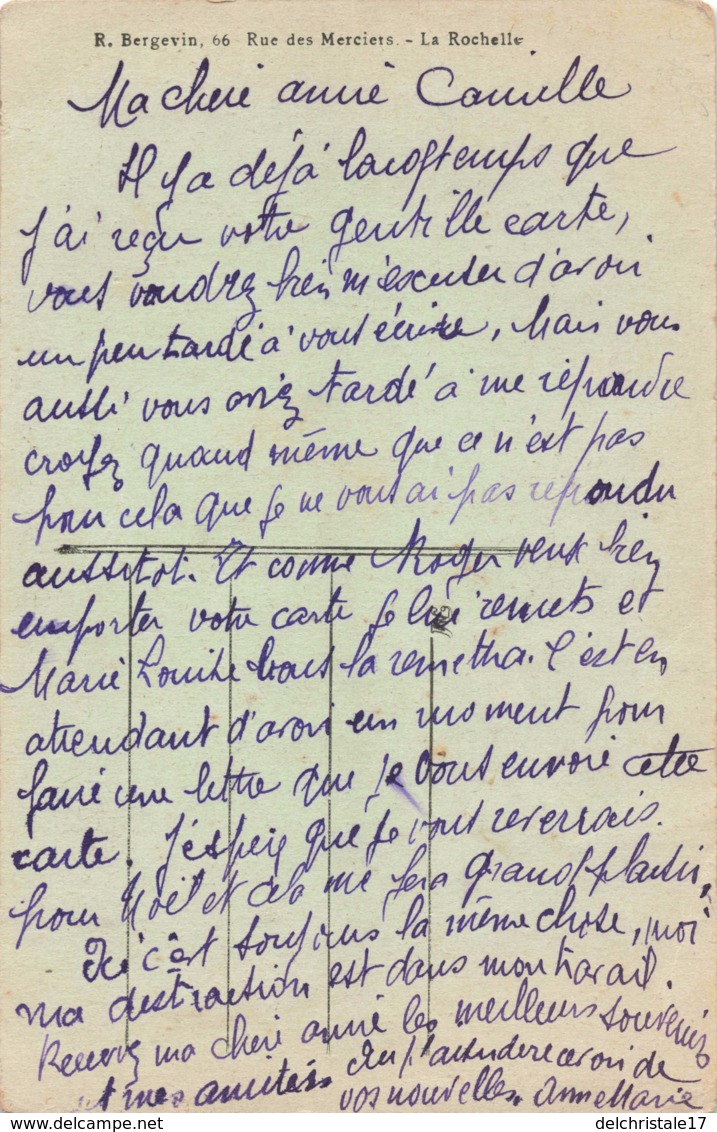 R. Bergevin, 66 Rue des Merciers. - La Rochelle
Ma cheré amié Camille
Il y a déjà longtemps que
j'ai reçu votre gentille carte,
vous voudrez bien m'escuser d'avoir
un peu tardé à vous écrire, Mais vous
aussi vous aviez tardé à me répondre
croyez quand même que ce n'est pas
pour cela que je ne vous ai pas répondu
aussitot. Et comme Roger veux bien
emporter votre carte je lui remets et
Marie Louise vous la remettra. C'est en
attendant d'avoir un moment pour
faire une lettre que je vous envoie cette
carte. J'espère que je vous reverrais.
pour Noël et cela me fera grand plaisir,
Ici c'est toujours la même chose, moi
ma distraction est dans mon travail.
Recevez ma cheré amié les meilleurs souvenirs
et mes amitiés
de vos nouvelles. Anne Marie
delchristale17